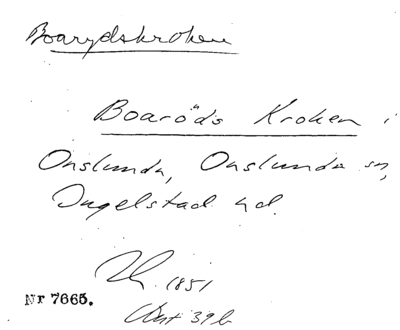 Boarydskroken
Boaröds Kroken i
Onslunda, Onslunda sn,
Ingelstad hd.
1851
Nr 7665.
39b